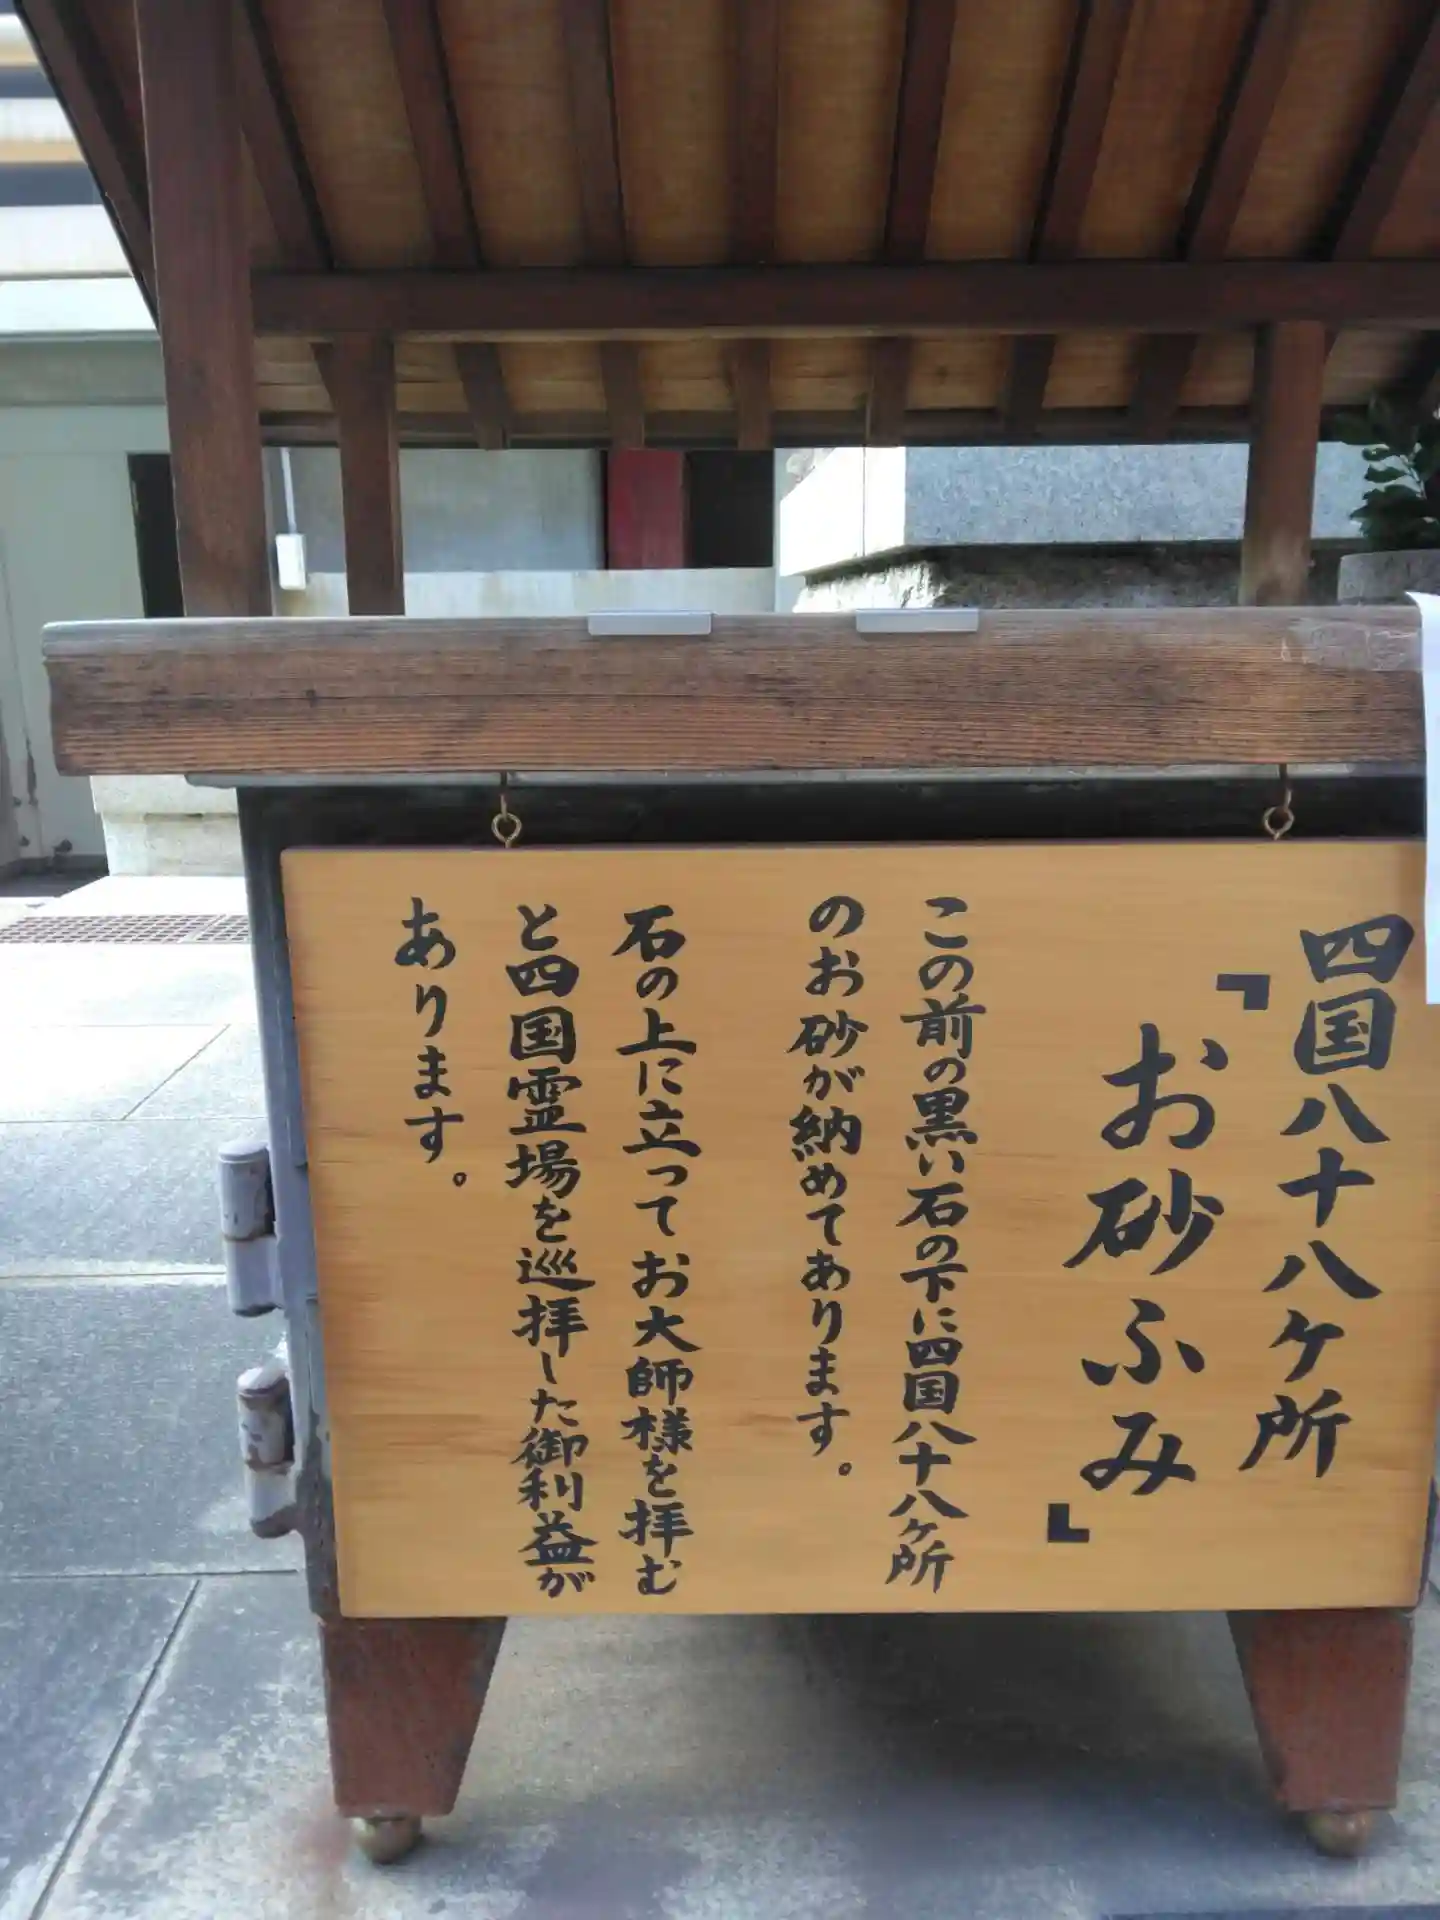 四国八十八ケ所
「お砂ふみ」
この前の黒い石の下に四国八十八ヶ所
のお砂が納めてあります。
石の上に立ってお大師様を拝む
と四国霊場を巡拝した御利益が
あります。